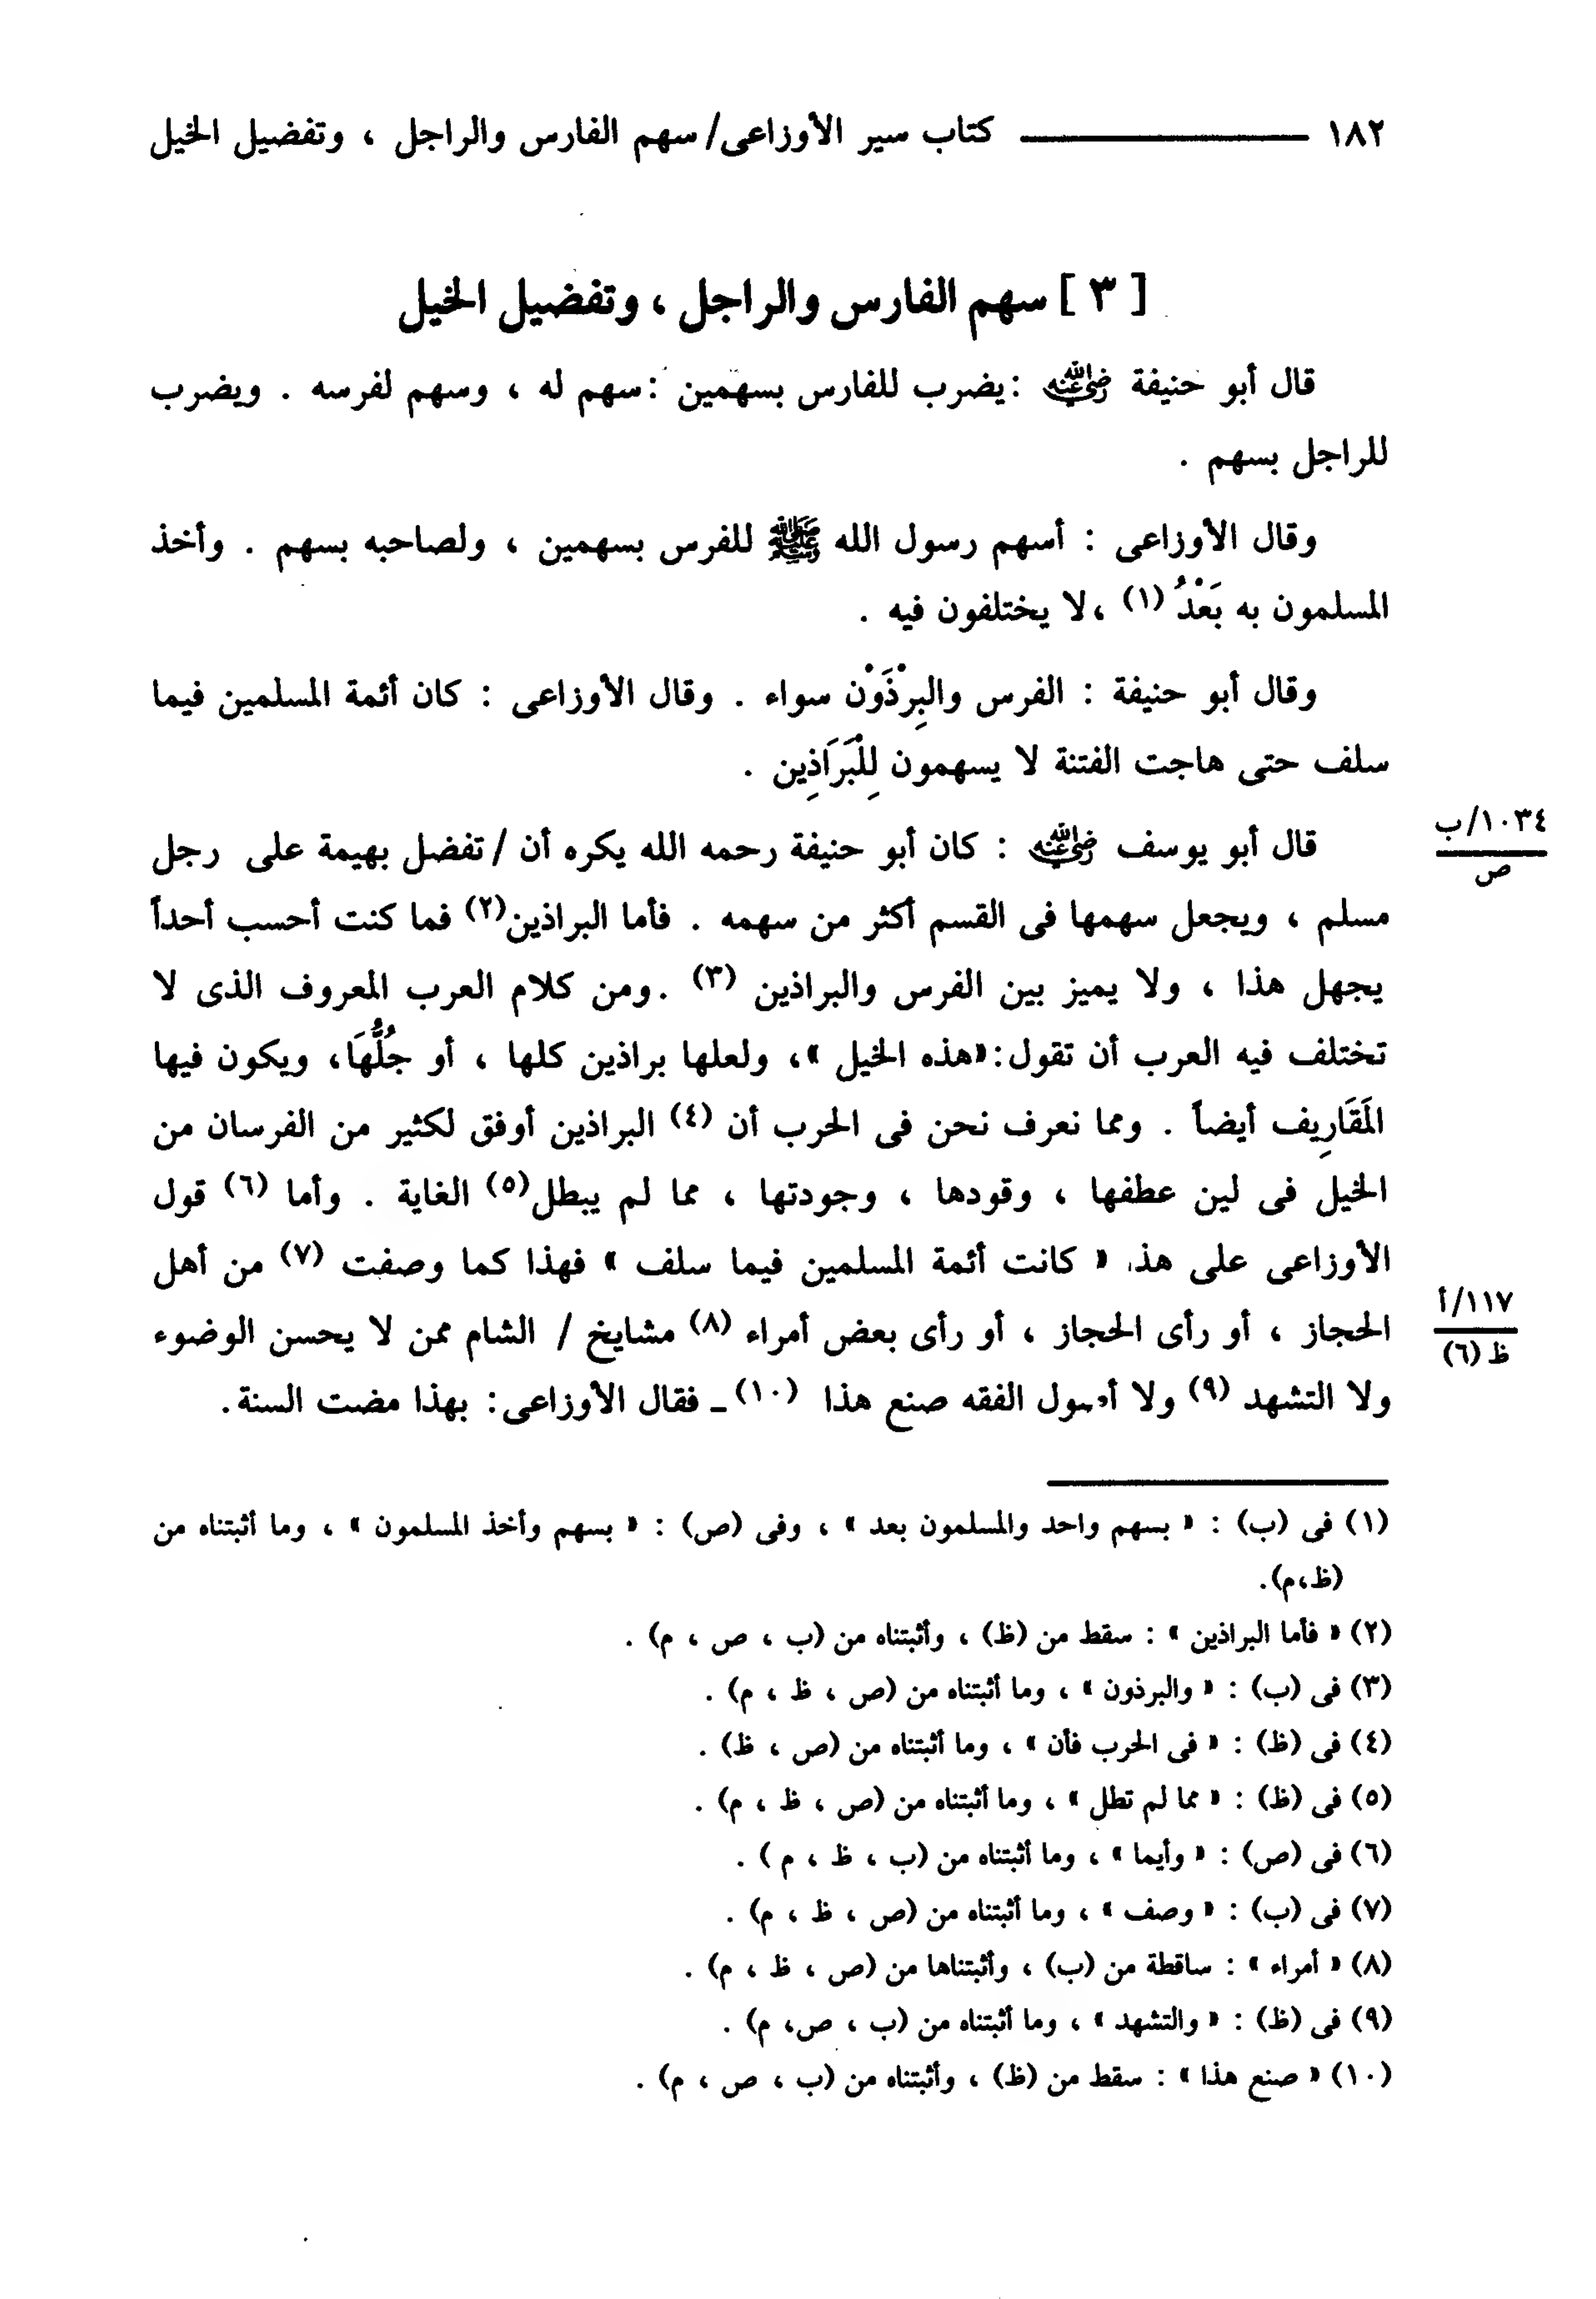 ١٨٢ ـــــــــــــــ كتاب سير الأوزاعى/ سهم الفارس والراجل ، وتفضيل الخيل
[ ٣ ] سهم الفارس والراجل ، وتفضيل الخيل
قال أبو حنيفة رضي الله عنه : يضرب للفارس بسهمين : سهم له ، وسهم لفرسه . ويضرب
للراجل بسهم .
وقال الأوزاعى : أسهم رسول الله ﷺ للفرس بسهمين ، ولصاحبه بسهم . وأخذ
المسلمون به بَعْدُ (١) ،لا يختلفون فيه .
وقال أبو حنيفة : الفرس والبِرْذَوْن سواء . وقال الأوزاعى : كان أئمة المسلمين فيما
سلف حتى هاجت الفتنة لا يسهمون لِلْبَرَاذِين .
قال أبو يوسف رضي الله عنه : كان أبو حنيفة رحمه الله يكره أن / تفضل بهيمة على رجل
١٠٣٤/ب
ص
مسلم ، ويجعل سهمها فى القسم أكثر من سهمه . فأما البراذين(٢) فما كنت أحسب أحداً
يجهل هذا ، ولا يميز بين الفرس والبراذين (٣) .ومن كلام العرب المعروف الذى لا
تختلف فيه العرب أن تقول:«هذه الخيل »، ولعلها براذين كلها ، أو جُلُّهَا، ويكون فيها
المَقَارِيف أيضاً . ومما نعرف نحن فى الحرب أن (٤) البراذين أوفق لكثير من الفرسان من
الخيل فى لين عطفها ، وقودها ، وجودتها ، مما لم يبطل(٥) الغاية . وأما (٦) قول
الأوزاعى على هذ « كانت أئمة المسلمين فيما سلف » فهذا كما وصفت (٧) من أهل
الحجاز ، أو رأى الحجاز ، أو رأى بعض أمراء (٨) مشايخ / الشام ممن لا يحسن الوضوء
١١٧/أ
ظ (٦)
ولا التشهد (٩) ولا أصول الفقه صنع هذا (١٠) ـ فقال الأوزاعى: بهذا مضت السنة.
(١) فى (ب) : « بسهم واحد والمسلمون بعد » ، وفى (ص) : « بسهم وأخذ المسلمون » ، وما أثبتناه من
(ظ،م).
(٢) « فأما البراذين » : سقط من (ظ) ، وأثبتناه من (ب ، ص ، م) .
(٣) فى (ب) : « والبرذون » ، وما أثبتناه من (ص ، ظ ، م) .
(٤) فى (ظ) : « فى الحرب فأن » ، وما أثبتناه من (ص ، ظ) .
(٥) فى (ظ) : « مما لم تطل » ، وما أثبتناه من (ص ، ظ ، م) .
(٦) فى (ص) : « وأيما » ، وما أثبتناه من (ب ، ظ ، م ) .
(٧) فى (ب) : « وصف » ، وما أثبتناه من (ص ، ظ ، م) .
(٨) « أمراء » : ساقطة من (ب) ، وأثبتناها من (ص ، ظ ، م) .
(٩) فى (ظ) : « والتشهد » ، وما أثبتناه من (ب ، ص، م) .
(١٠) « صنع هذا » : سقط من (ظ) ، وأثبتناه من (ب ، ص ، م) .